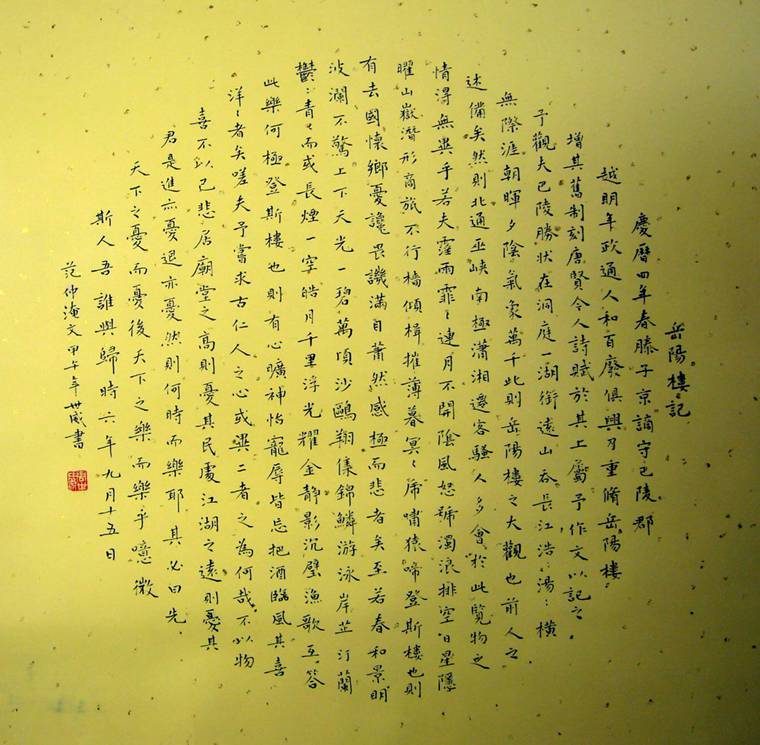 岳陽樓記
慶曆四年春滕子京謫守巴陵郡
越明年政通人和百廢俱興乃重脩岳陽樓
增其舊制刻唐賢今人詩賦於其上屬予作文以記之
予觀夫巴陵勝狀在洞庭一湖銜遠山吞長江浩〻湯〻橫
無際涯朝暉夕陰氣象萬千此則岳陽樓之大觀也前人之
述備矣然則北通巫峽南極瀟湘遷客騷人多會於此覽物之
情得無異乎若夫霪雨霏〻連月不開陰風怒號濁浪排空日星隱
曜山嶽潛形商旅不行檣傾楫摧薄暮冥〻虎嘯猿啼登斯樓也則
有去國懷鄉憂讒畏譏滿目蕭然感極而悲者矣至若春和景明
波瀾不驚上下天光一碧萬頃沙鷗翔集錦鱗游泳岸芷汀蘭
鬱〻青〻而或長煙一空皓月千里浮光耀金靜影沉璧漁歌互答
此樂何極登斯樓也則有心曠神怡寵辱皆忘把酒臨風其喜
洋〻者矣嗟夫予嘗求古仁人之心或異二者之為何哉不以物
喜不以己悲居廟堂之高則憂其民處江湖之遠則憂其
君是進亦憂退亦憂然則何時而樂耶其必曰先
天下之憂而憂後天下之樂而樂乎噫微
斯人吾誰與歸時六年九月十五日
范仲淹文甲午年世威書